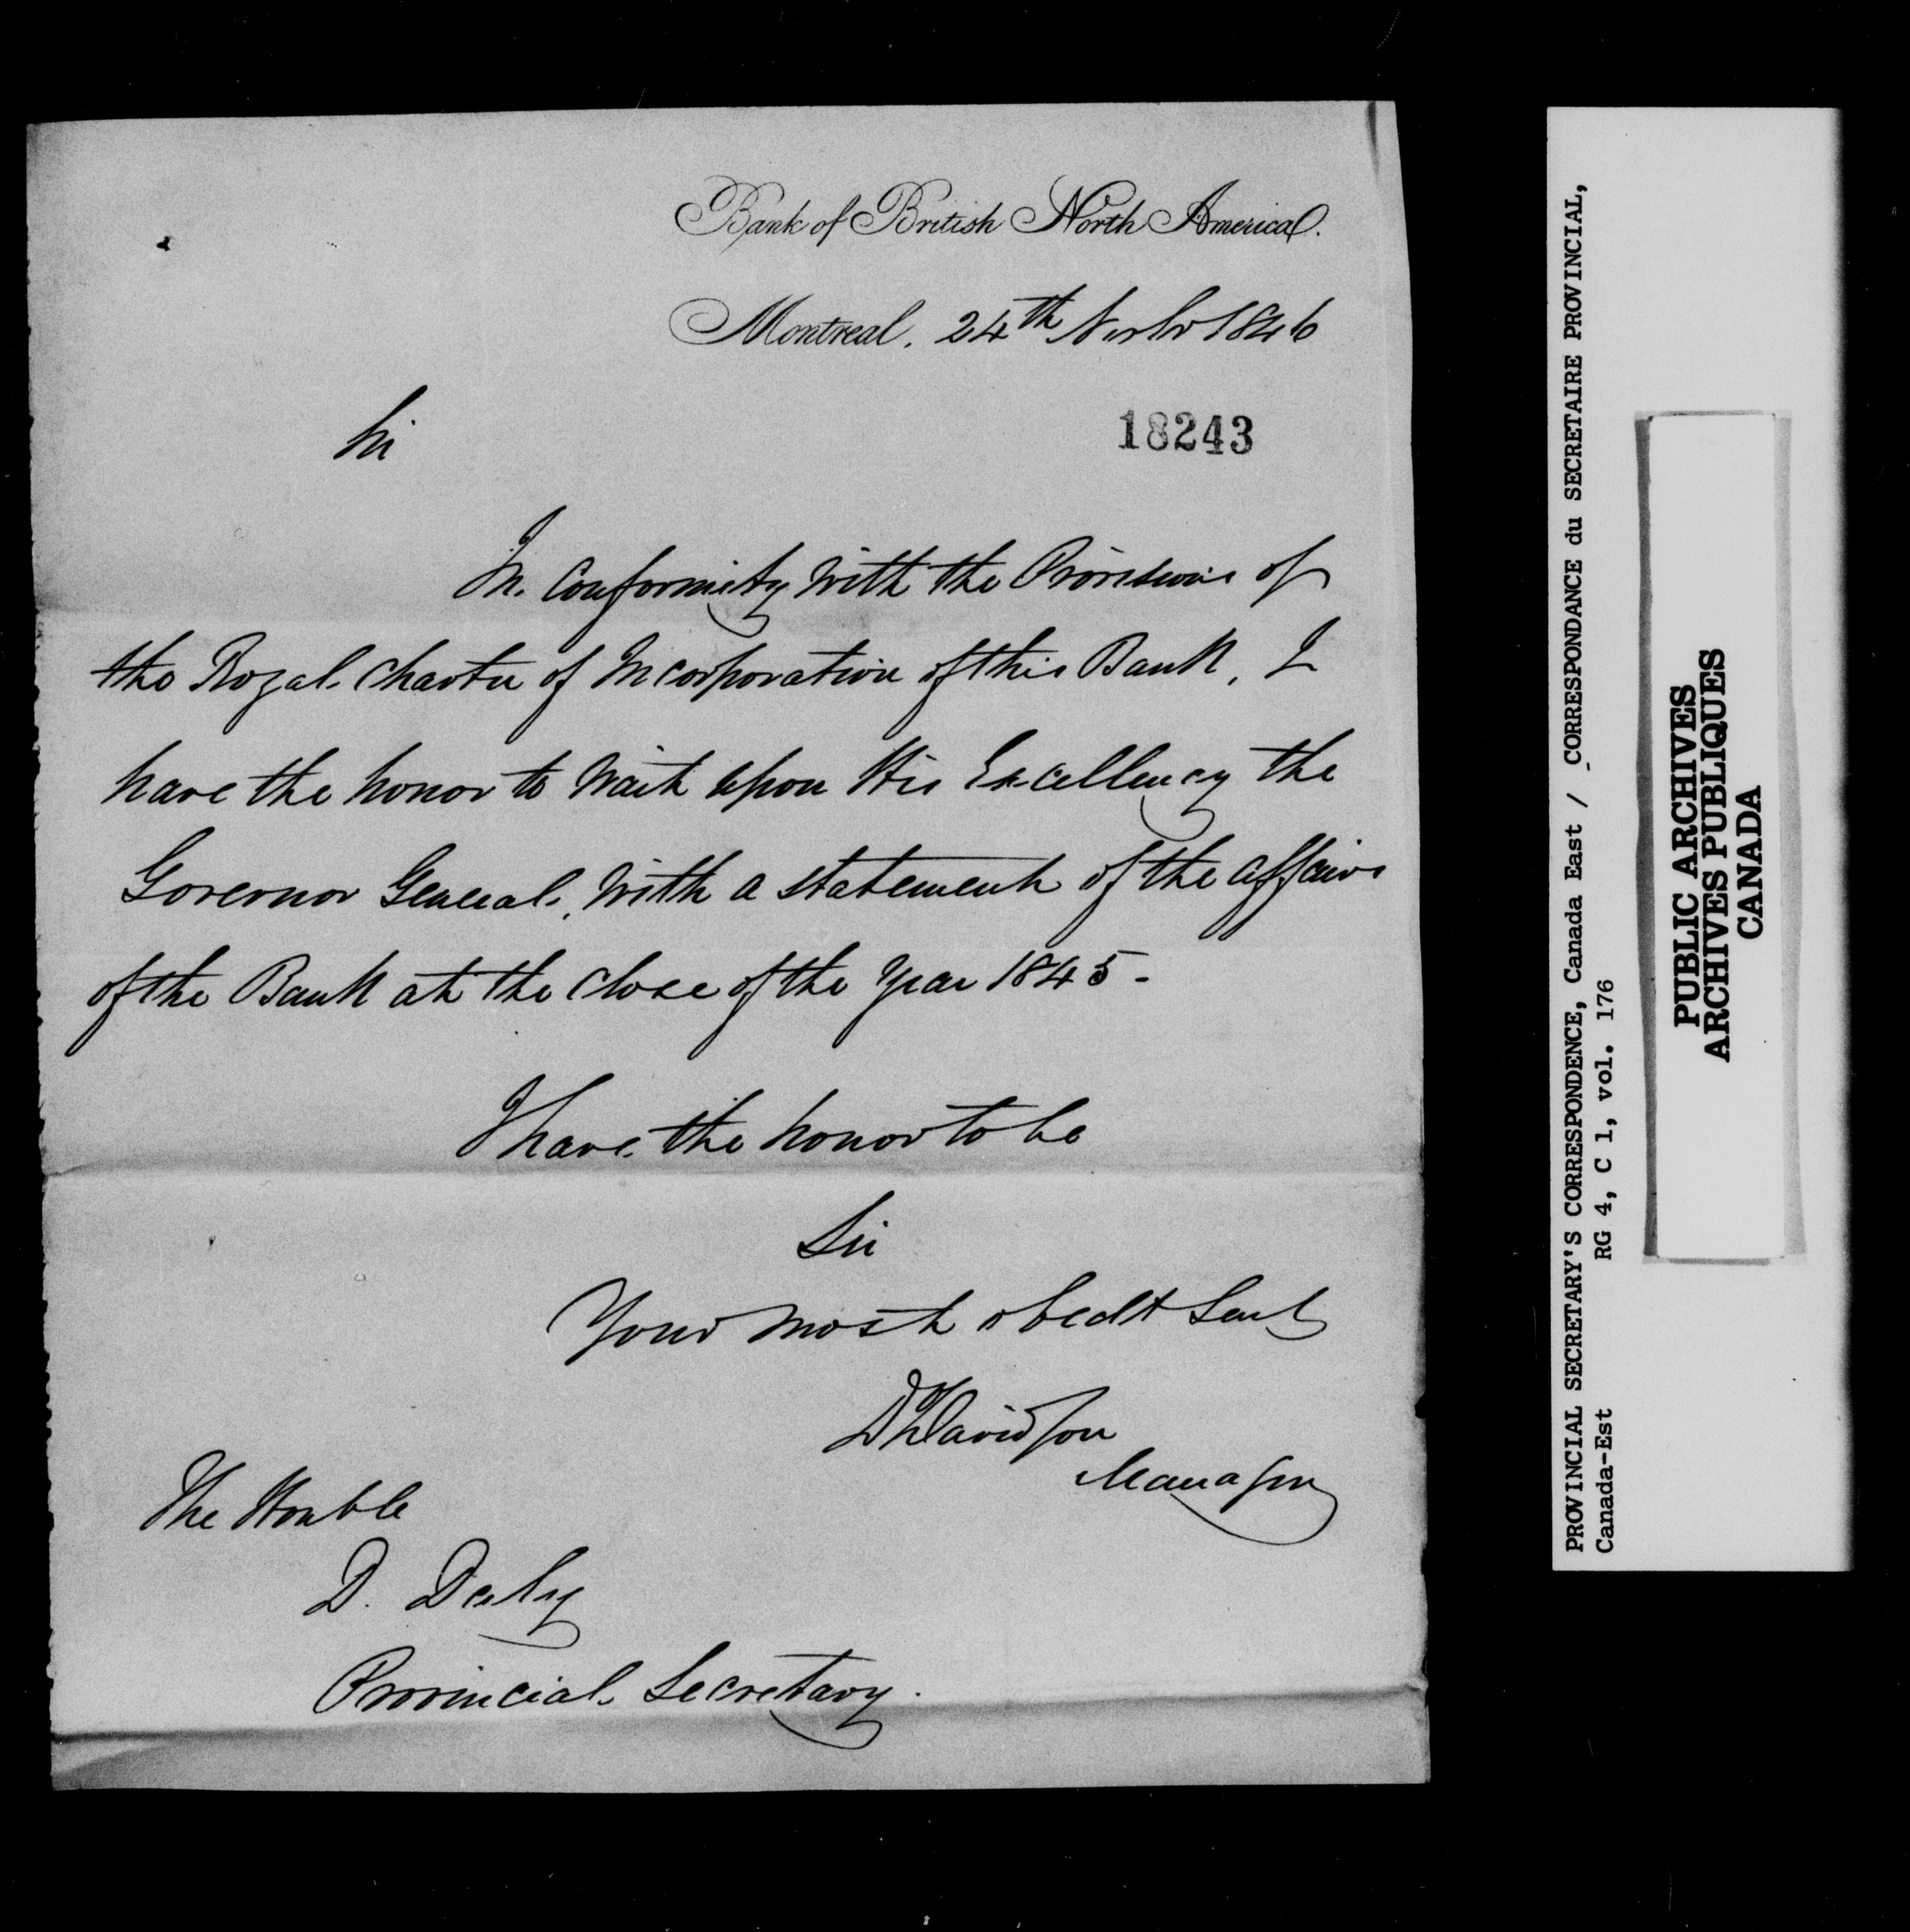 Bank of British North America.
Montreal. 24th Novbr 1846
Sir
18243
In Conformity with the Provisions of
the Royal Charter of Incorporation of this Bank, I
have the honor to Wait upon His Excellency the
Governor General, With a statement of the affairs
of the Bank at the Close of the Year 1845-
I have the honor to be
Sir
Your most obedt Servt
D Davidson
Manager
The Honble
D. Daly
Provincial Secretary.
PROVINCIAL SECRETARY'S CORRESPONDENCE, Canada East / CORRESPONDANCE du SECRETAIRE PROVINCIAL,
Canada-Est RG 4, C 1, vol. 176
PUBLIC ARCHIVES
ARCHIVES PUBLIQUES
CANADA